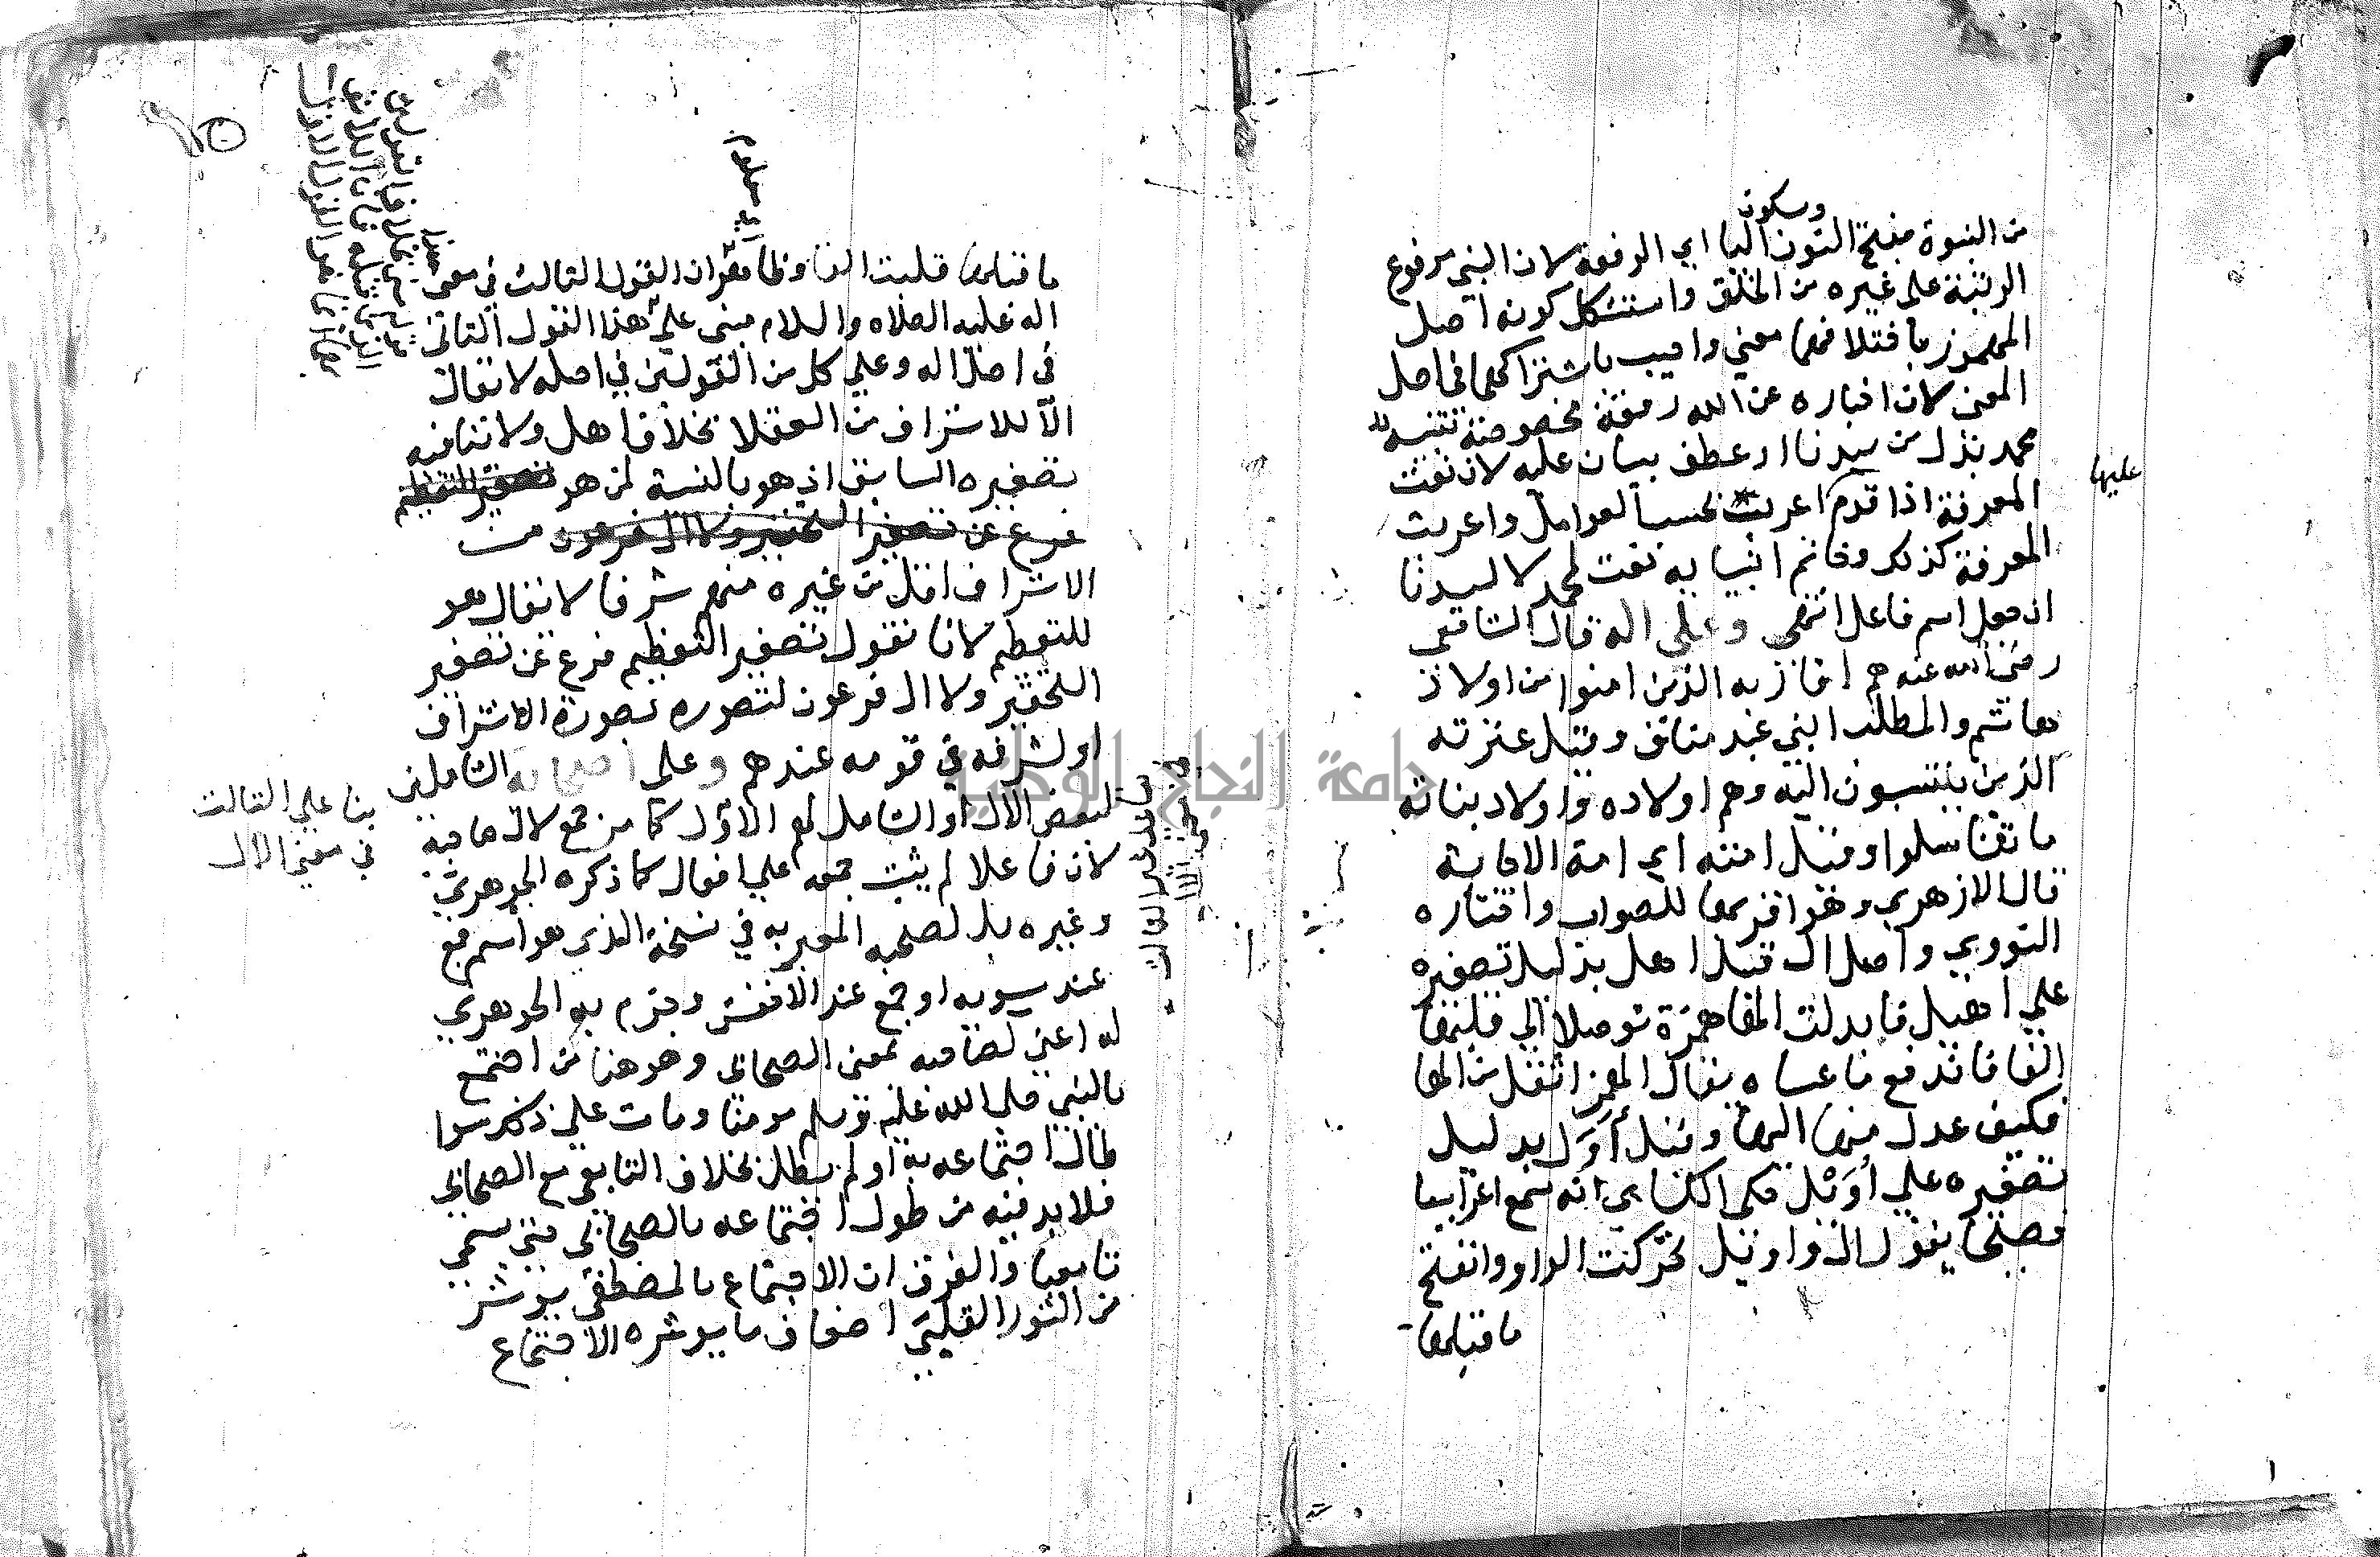 وسكون
من النبوة بفتح النون البا اي الرفعة لان النبي مرفوع
الرتبة على غيره من الخلق واستشكل كونه اصل
المهموز باختلافهما معني واجيب باشتراكهما في اصل
المعني لان اخباره عن الله رفعة مخصوصة تتنبيه
محمد بدل من سيدنا او عطف بيان عليه لان نعت
عليها
المعرفة اذا قدم اعربت بحسب العوامل واعربت
المعرفة كذلك وخاتم انبيايه نعت لمحمد لا لسيدنا
اذ جعل اسم فاعل انتهي وعلى اله قال الشافعي
رضي الله عنه هم اقاربه الذين امنوا من اولاد
هاشم والمطلب ابني عبد مناف وقيل عترته
الذين ينتسبون اليه وهم اولاده واولاد بناته
ما تناسلوا وقيل امته اي امة الاجابة
قال الازهري وهو اقربها للصواب واختاره
النووي واصل ال قيل اهل بدليل تصغيره
علي اهيل فابدلت الهاهمزة توصلا الي قلبها
الفا فاندفع ما عساه يقال الهمز اثقل من الها
فكيف عدل منها اليها وقيل أوَل بدليل
تصغيره علي أوَيل حكي الكساي انه سمع اعرابيا
فصيحا يقول ال واويل تحركت الواو وانفتح
ما قبلها
ما قبلها قلبت الفا وظاهر ان القول الثالث في معني
اله عليه الصلاه والسلام مبني علي هذا القول الثاني
في اصل اله وعلي كل من القولين في اصله لا يقال
الآ للاشراف من العقلا بخلاف اهل ولا تنافيه
تصغيره السابق اذ هو بالنسبة لمن هو تصغير التعظيم
فرع عن تصغير التحقير ولا ال فرعون من
الاشراف اقل من غيره منهم شرفا لا يقال هو
للتعظيم لانا نقول تصغير التعظيم فرع عن تصغير
التحقير ولا ال فرعون لتصوره بصورة الاشراف
او لشرفه في قومه عندهم وعلى اصحابه الشاملين
بنا علي الثالث
في معني الال
لبعض الال او الشامل لهم الاول كما من جمع لال صاحبه
لان فاعلا لم يثبت جمعه علي افعال كما ذكره الجوهري
وغيره بل لصحبه المعبر به في نسخة الذي هو اسم جمع
عند سيبويه او جمع عند الاخفش وجزم به الجوهري
له اعني لصاحبه بمعني الصحابي وهو هنا من اجتمع
بالنبي صلي الله عليه وسلم مومنا ومات علي ذلك سوا
طال اجتماعه به او لم يطل بخلاف التابعي مع الصحابي
فلا بد فيه من طول اجتماعه بالصحابي حتي يسمي
تابعيا والفرق ان الاجتماع بالمصطفي يوثر
من النور القلبي اضعاف ما يوثره الاجتماع